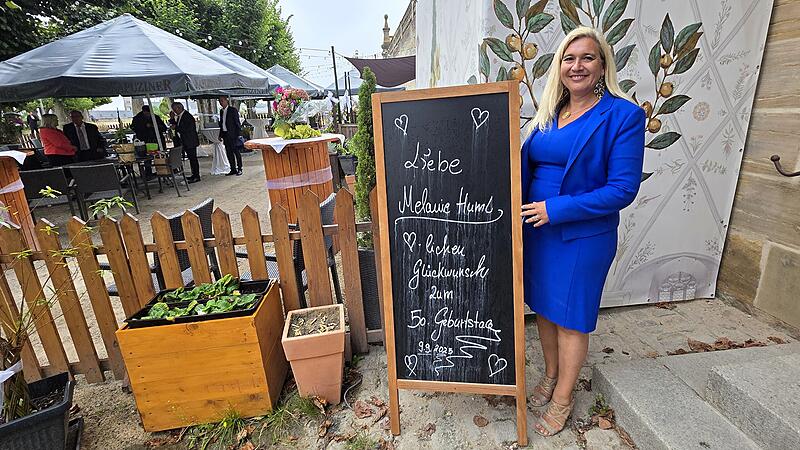 PUZINER
Liebe
Melanie Huml
lichen
Glückwunsch
zum
50. Geburtstag
9.9.2025